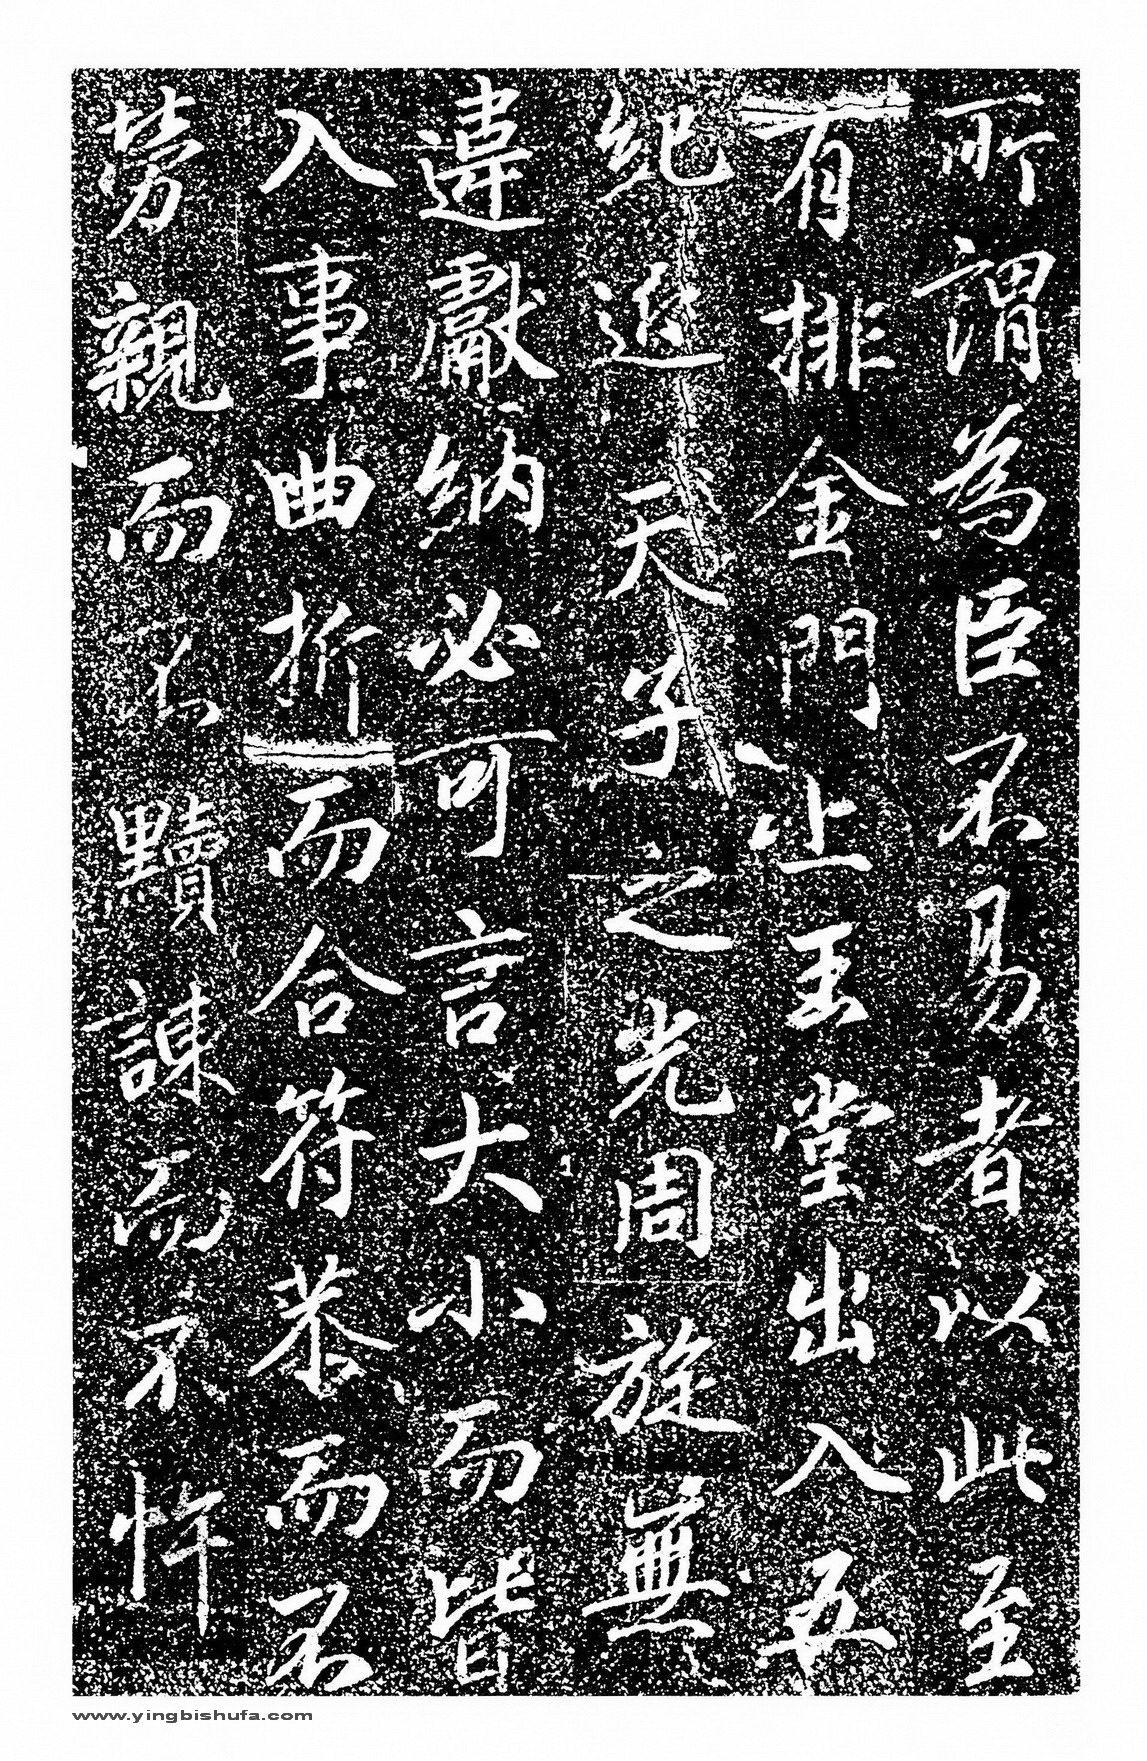 所謂為臣不易者以此至
有排金門上玉堂出入五
紀近天子之光周旋無
違獻納必可言大小而皆
入事曲折而合符恭而不
勞親而不黷諫而不忤
www.yingbishufa.com